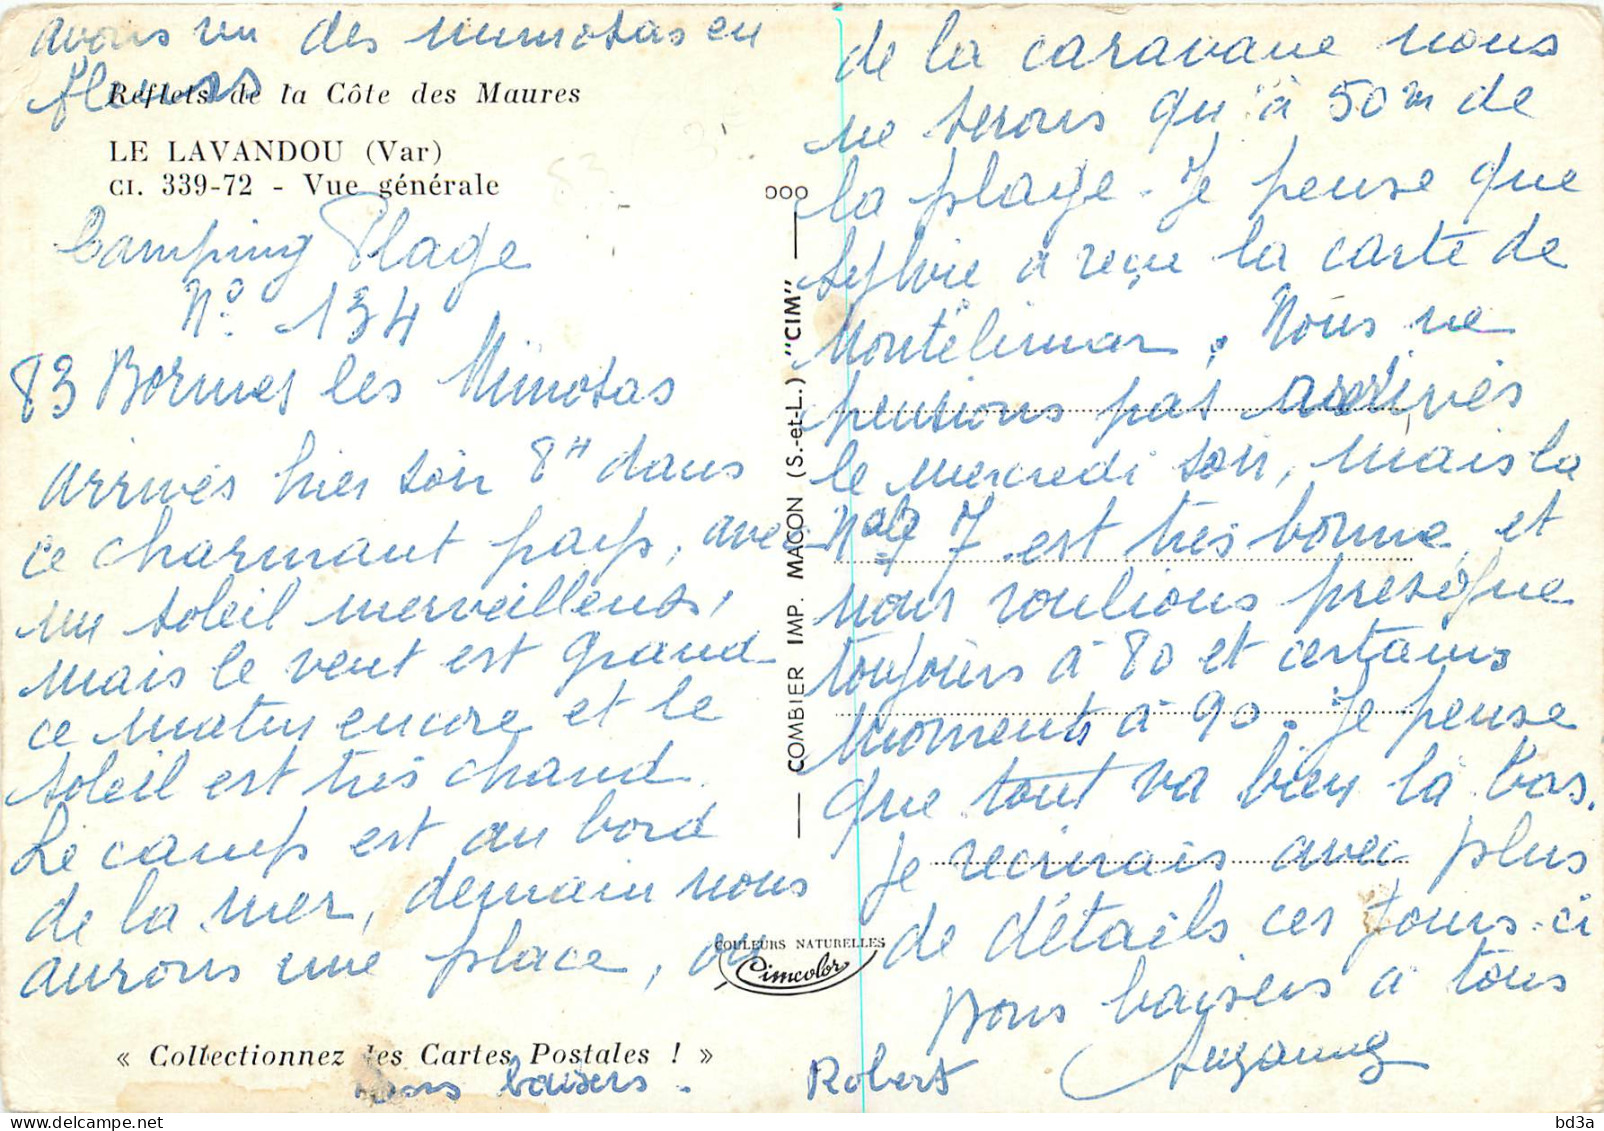 avons vu des mimosas en
fleurs
Reflets de la Côte des Maures
LE LAVANDOU (Var)
CI. 339-72 - Vue générale
Camping Plage
N° 134
83 Bormes les Mimosas
arrivés hier soir 8H dans
ce charmant pays, avec
un soleil merveilleux,
mais le vent est grand
ce matin encore et le
soleil est très chaud.
Le camp est au bord
de la mer, demain nous
aurons une place, ou
« Collectionnez les Cartes Postales ! »
bons baisers. Robert
COMBIER IMP. MACON (S.-et-L.) "CIM"
COULEURS NATURELLES
Cimcolor
de la caravane nous
ne serons qu'à 50m de
la plage. Je pense que
Sylvie a reçu la carte de
Montélimar. Nous ne
pensions pas arrivés
le mercredi soir, mais la
Nale 7 est très bonne, et
nous roulions presque
toujours à 80 et certains
moments à 90. Je pense
que tout va bien là bas.
Je récrirais avec plus
de détails ces jours-ci
bons baisers à tous
Suzanne
bd3a